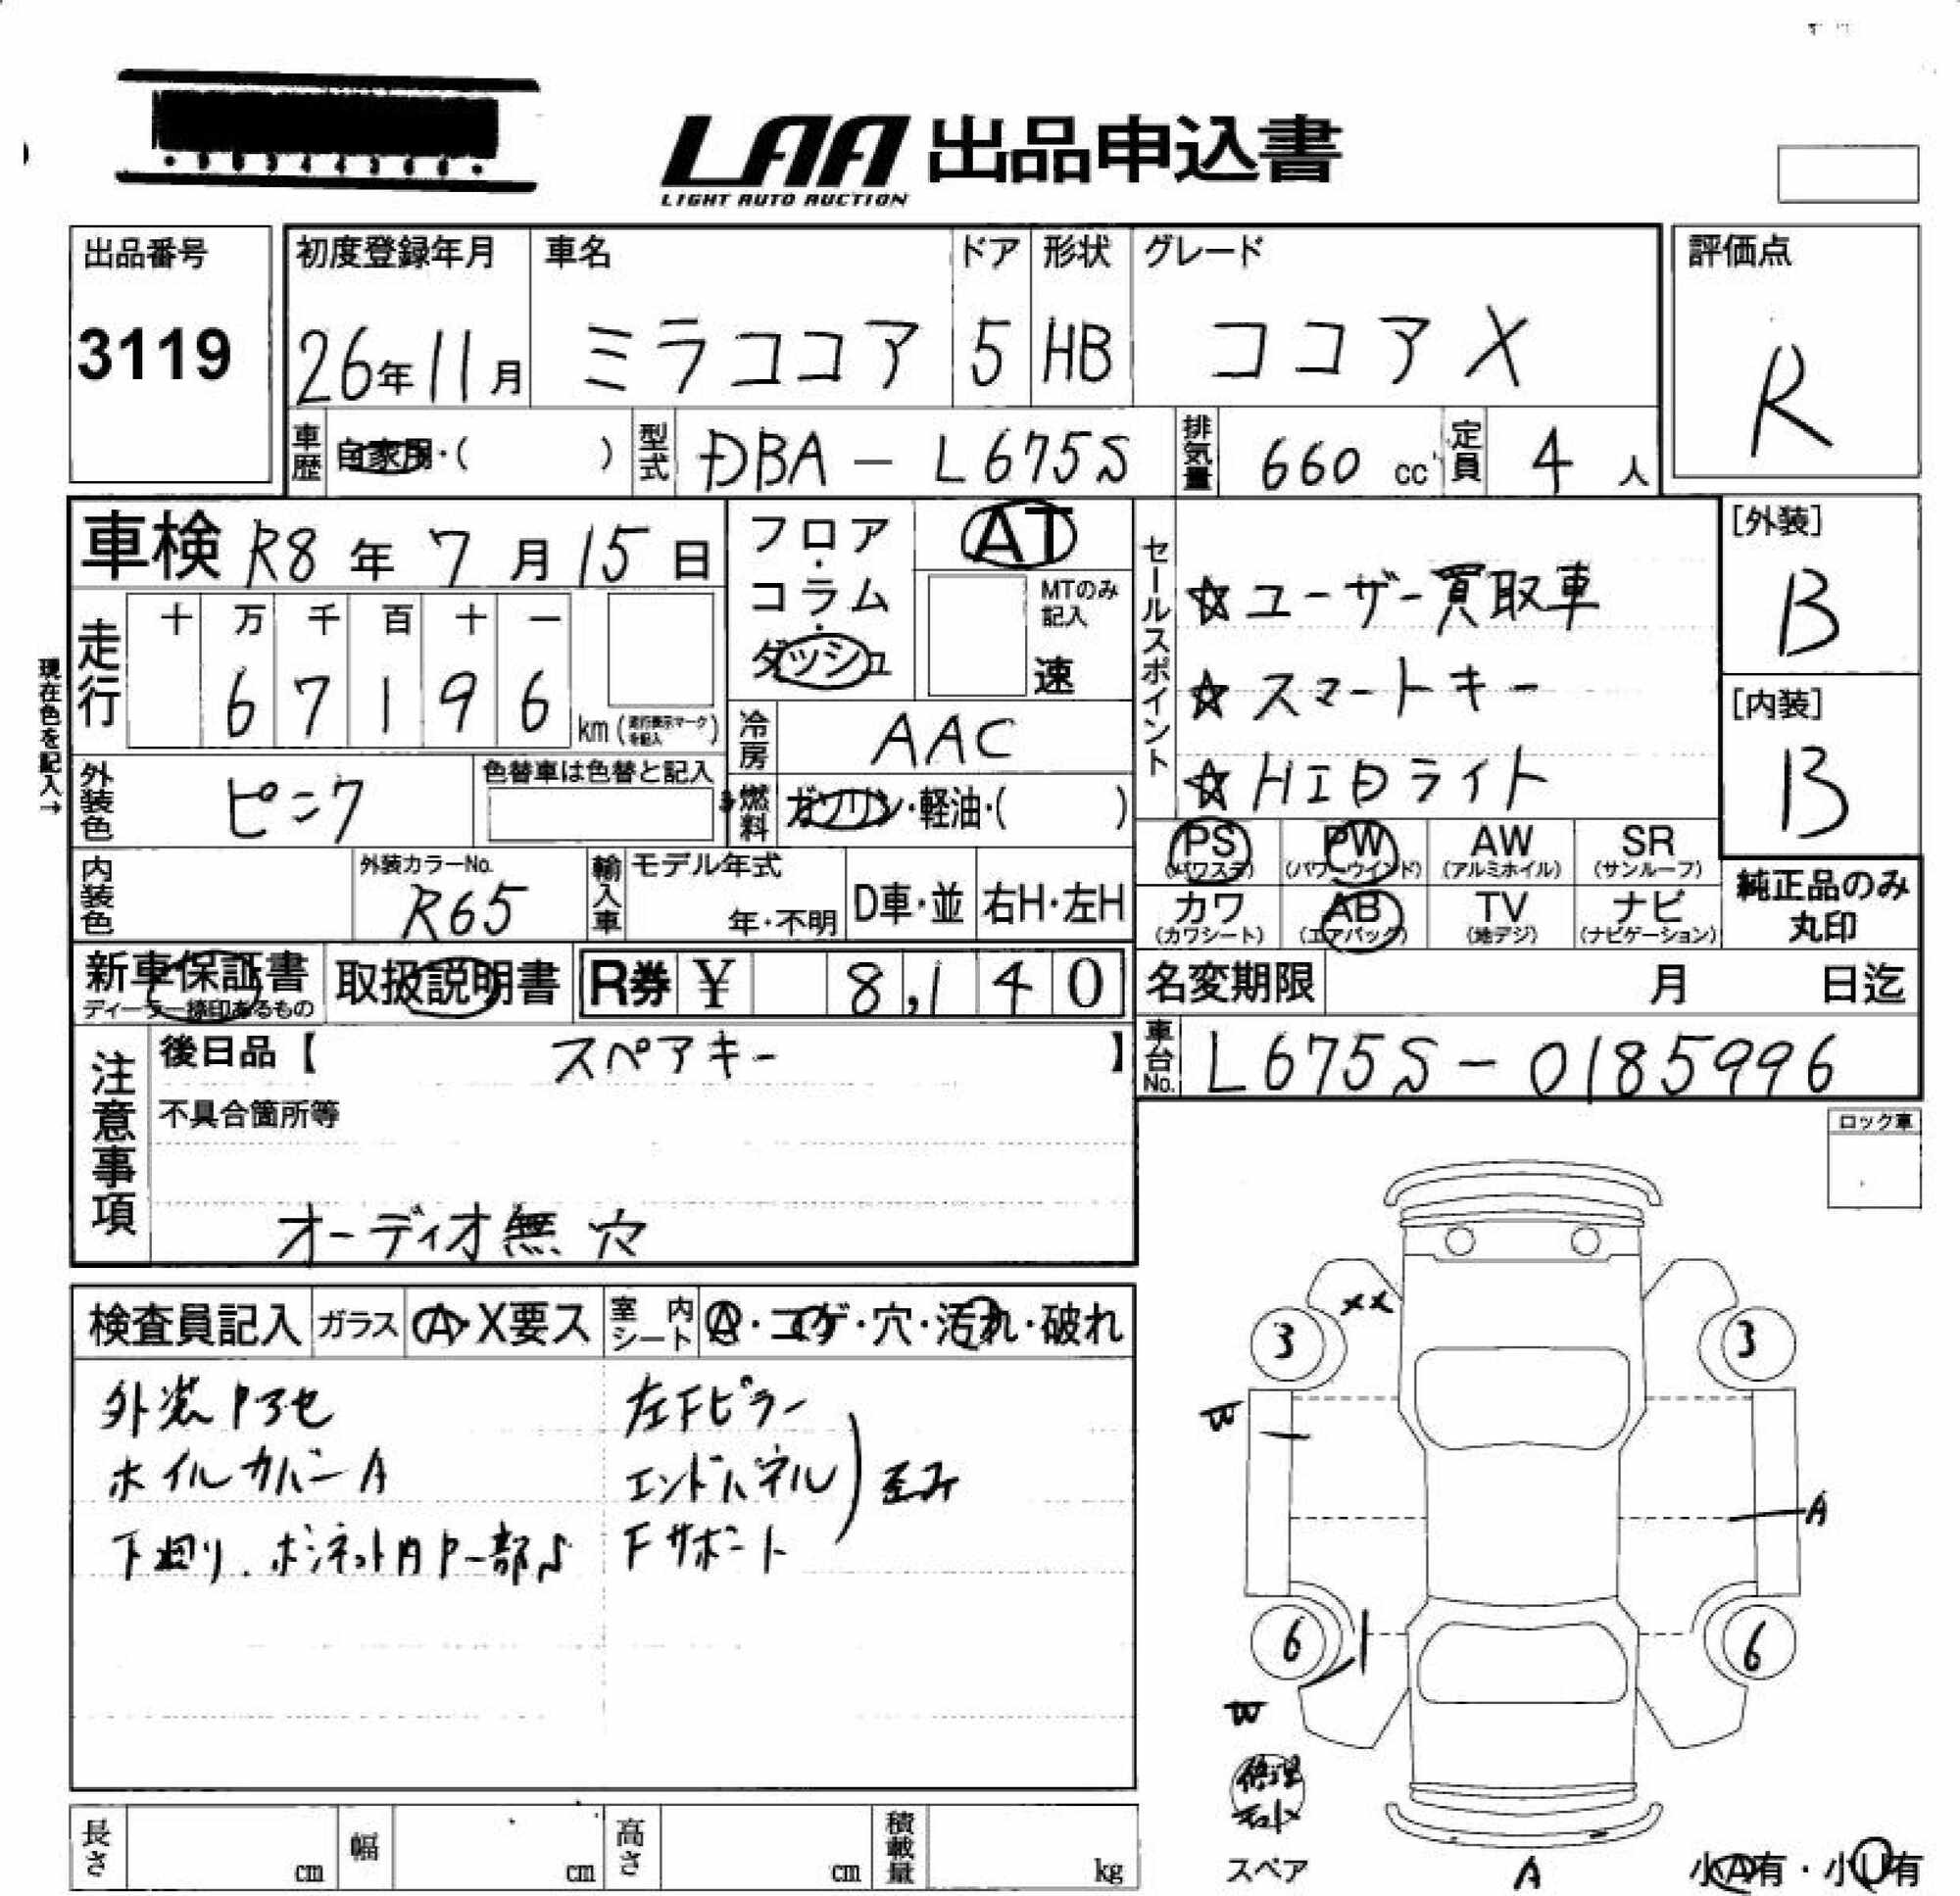 LAA 出品申込書
LIGHT AUTO AUCTION
出品番号
3119
初度登録年月
26年11月
車名
ミラココア
ドア
5
形状
HB
グレード
ココアX
評価点
R
車歴
自家用・( )
型式
DBA - L675S
排気量
660 cc
定員
4 人
車検 R8年 7月 15日
フロア・コラム・ダッシュ
AT
MTのみ記入
速
セールスポイント
☆ユーザー買取車
☆スマートキー
☆HIDライト
[外装]
B
[内装]
B
現在色を記入→
走行
十 万 千 百 十 一
6 7 1 9 6
km (走行表示マークを記入)
冷房
AAC
外装色
ピンク
色替車は色替と記入
燃料
ガソリン・軽油・( )
PS (パワステ)
PW (パワーウインド)
AW (アルミホイル)
SR (サンルーフ)
カワ (カワシート)
AB (エアバッグ)
TV (地デジ)
ナビ (ナビゲーション)
純正品のみ丸印
内装色
外装カラーNo.
R65
輸入車
モデル年式
年・不明
D車・並
右H・左H
新車保証書
ディーラー捺印あるもの
取扱説明書
R券 ¥ 8,140
名変期限 月 日迄
車台No.
L675S-0185996
注意事項
後日品【 スペアキー 】
不具合箇所等
オーディオ無 穴
ロック車
検査員記入
ガラス
A・X要ス
室内シート
A・コゲ・穴・汚れ・破れ
外装 アセ
ホイルカバーA
下廻り、ボンネット内 一部S
左Fピラー
エンドパネル
Fサポート
歪み
XX
3
3
W
A
6
6
W
修理
スペア
A
小A有・小U有
長さ cm
幅 cm
高さ cm
積載量 kg